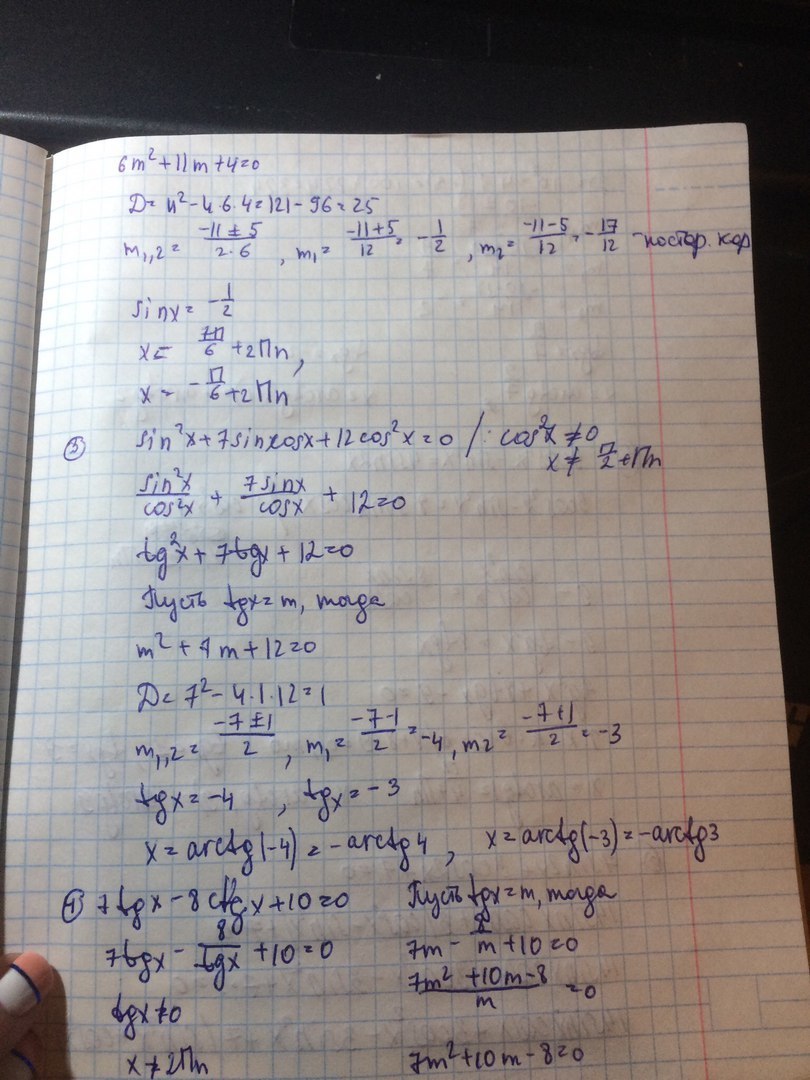 6m²+11m+4=0
D= 11²-4·6·4=121-96=25
m₁,₂= (-11±5)/(2·6) , m₁= (-11+5)/12 = -1/2 , m₂= (-11-5)/12 = -17/12 - постор. кор
sinx= -1/2
x= 7П/6 +2Пn,
x= -П/6+2Пn
③ sin²x+7sinxcosx+12cos²x=0 /: cos²x≠0
x≠ П/2+Пn
sin²x/cos²x + 7sinx/cosx + 12=0
tg²x+7tgx+12=0
Пусть tgx=m, тогда
m²+7m+12=0
D= 7²-4·1·12=1
m₁,₂= (-7±1)/2 , m₁= (-7-1)/2 = -4, m₂= (-7+1)/2 = -3
tgx=-4 , tgx=-3
x=arctg(-4)=-arctg4 , x=arctg(-3)=-arctg3
④ 7tgx-8ctgx+10=0
7tgx- 8/tgx +10=0
tgx≠0
x≠2Пn
Пусть tgx=m, тогда
7m- 8/m +10=0
(7m²+10m-8)/m =0
7m²+10m-8=0